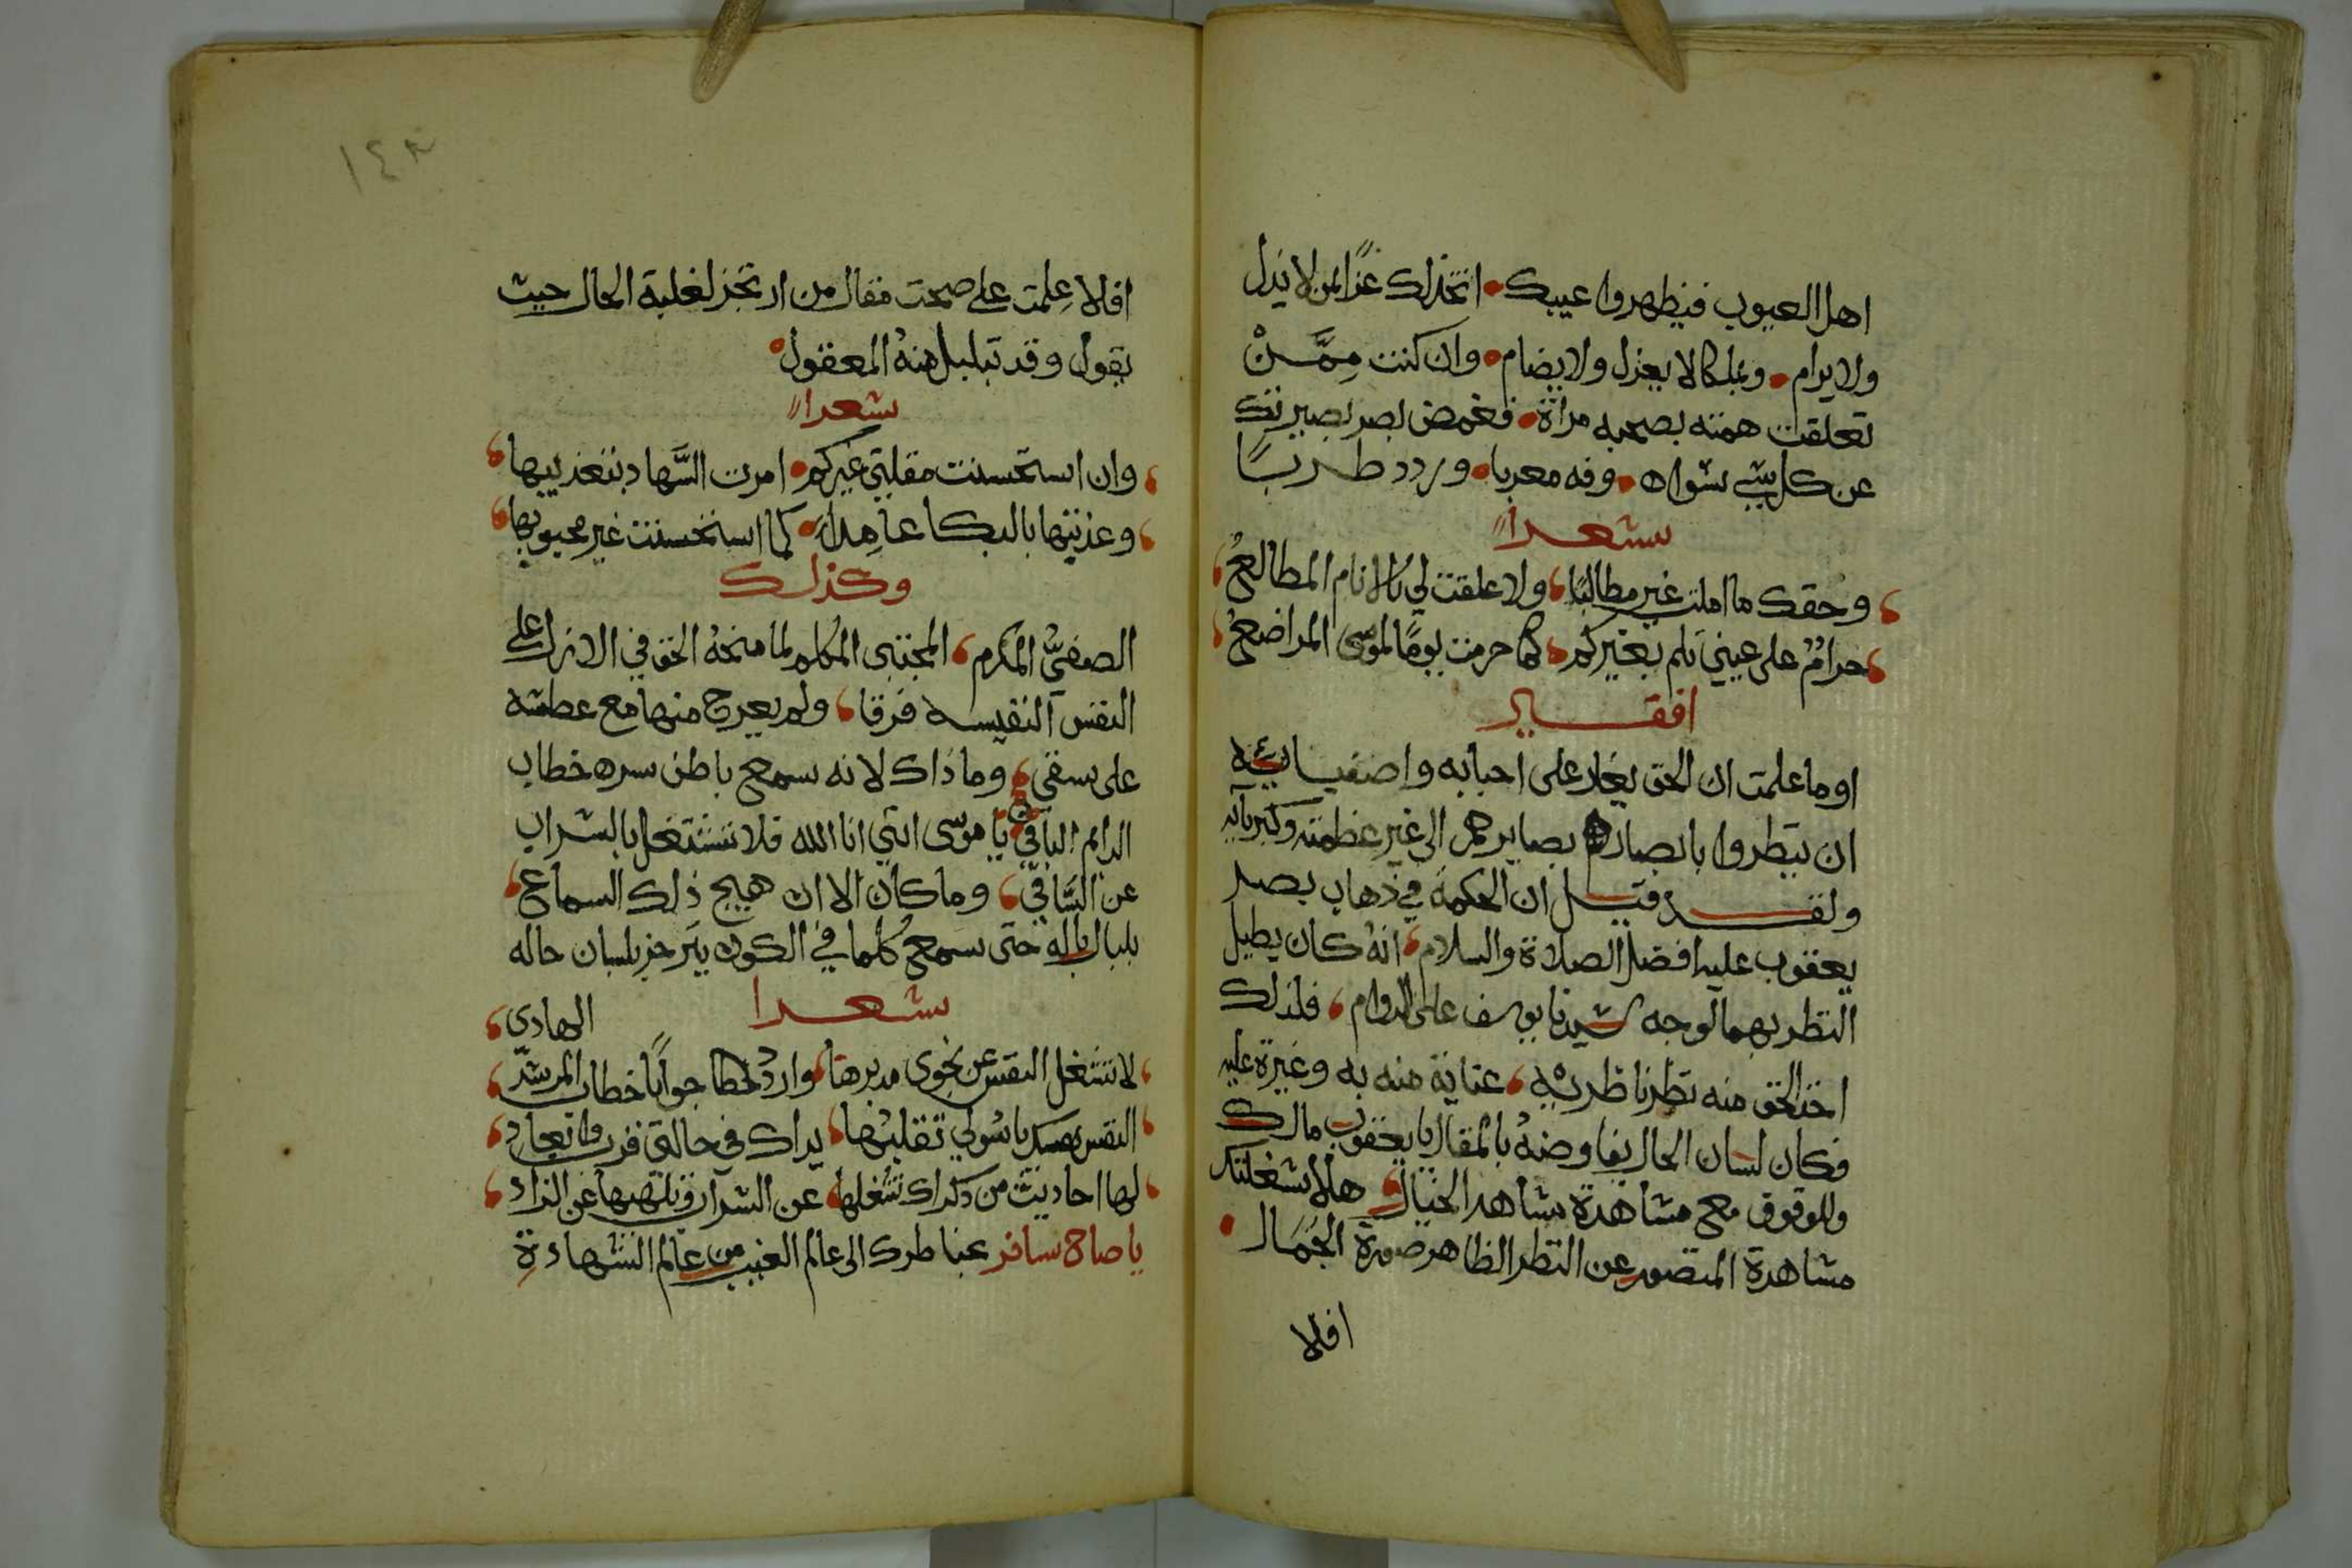 اهل العيوب فيظهروا عيبك • اتخذلك عزا لمن لا يذل
ولا يرام • وملكا لا يعزل ولا يضام • وان كنت مِمَّنْ
تعلقت همته بصحبه مراة • فغمض بصر بصيرتك
عن كل شي سواه • وفه معربا • وردد طربًا
شعرا
وحقك ما املت غير مطالبًا، ولا علقت لي بالانام المطالعُ
حرامٌ على عيني تلم بغيركم، كما حرمت يومًا لموسى المراضعُ
افقير
او ما علمت ان الحق يغار على احبابه واصفيائه
ان ينظروا بابصار بصايرهم الى غير عظمته وكبريائه
ولقد قيل ان الحكمة في ذهاب بصر
يعقوب عليه افضل الصلاة والسلام، انهُ كان يطيل
النظر بهما لوجه سيدنا يوسف على الدوام، فلذلك
اخذ الحق منه نظر ناظريه، عناية منه به وغيرة عليه
فكان لسان الحال يفاوضهُ بالمقال يا يعقوب مالك
وللوقوف مع مشاهدة شاهد الخيال، هلا شغلتك
مشاهدة المتصور عن النظر الظاهر صورة الجَمَال •
افلا
١٤٣
افلا عِلمت على صحت فقال من ارتجز لغلبة الحال حيث
يقول وقد تبلبل منهُ المعقول
شعرا
وان استحسنت مقلتي غيركم • امرت السَّهاد بتعذيبها
وعذبتها بالبكا عامدًا • كما استحسنت غير محبوبها
وكذلك
الصفيُّ المكرم، المجتبى المكلم لما منحهُ الحق في الازل على
النفس النفيسه فرقا، ولم يعرج منها مع عطشه
على سقى، وما ذاك لانه سمع باطن سره خطاب
الدايم الباقي يا موسى انني انا الله فلا تشتغل بالشراب
عن السَّاقيّ، وما كان الا ان هيج ذلك السماع
بلبال باله حتى سمع كلما في الكون يترجز بلسان حاله
شعرا
الهادي
لا تشغل النفس عن نجوى مدبرها، واردد لخطا جوابًا خطاب المرشد
النفس يا سُولي تقلبُها، يراك في حالتي قرب وابعاد
لها احاديث من ذكراك تشغلها، عن الشراب وتلهيها عن الزاد
يا صاح سافر عنا طرك الى عالم الغيب من عالم الشهادةِ